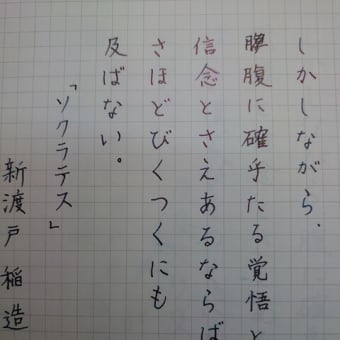 しかしながら、
脾腹に確乎たる覚悟と
信念とさえあるならば
さほどびくつくにも
及ばない。
「ソクラテス」
新渡戸稲造